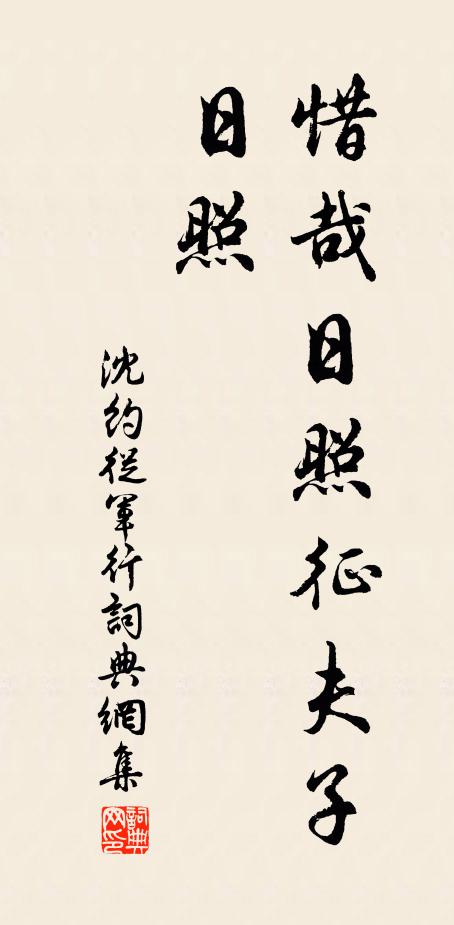 惜哉日照征夫子
日照
沈约從軍行詞典網集
詞典
网印